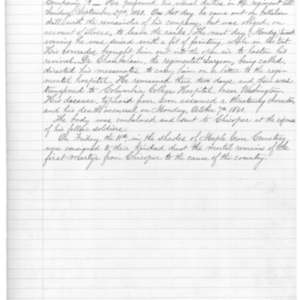 Company, he performed his usual duties in the regiment till
Sunday September 29th 1861. On that day he came out in battalion
drill with the remainder of his company, but was obliged, on
account of illness, to leave the ranks. The next day, Monday,
evening he was seized with a fit of fainting. After the first
his comrades brought him out into the open air to hasten his
revival. Dr Chamberlain, the regimental Surgeon, being called,
directed his messmates to carry him on a litter to the regi-
mental hospital. He remained there two days and then was
transferred to Columbia College Hospital, near Washington.
His disease, typhoid fever, soon assumed a threatening character
and his death occurred on Monday, October 7th 1861.
The body was embalmed and sent to Chicopee at the expense
of his fellow soldiers.
On Friday, the 11th, in the shades of Maple Grove Cemetery
was consigned to its kindred dust the mortal remains of the
first martyr from Chicopee to the cause of the country.